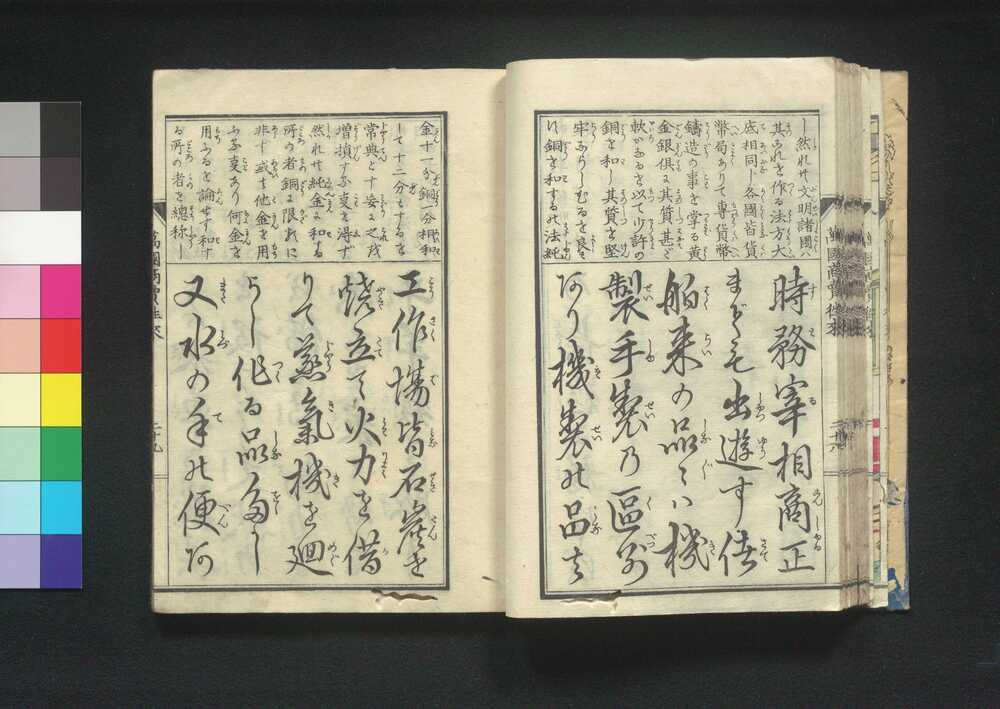 し然れ𪜈文明諸國ハ
其これを作る法方大
底相同し各國皆貨
幣局ありて専貨幣
鑄造の事を掌る黄
金銀倶に其質甚た
軟かなるを以て少許の
銅を和し其質を堅
牢ならしむるを良と
に銅を和するの法純
時務宰相商正
まても出遊す偖
舶来の品々ハ機
製手製乃區別
あり機製の品は
金十一分銅一分相和
して十二分とするを
常典とす妄に之を
増損する事を得ず
然れ𪜈純金に和する
所の者銅に限れるに
非ず或は他金を用
ふる事あり何金を
用ふるを論せす和す
る所の者を總称し
工作場皆石炭を
焼立て火力を借
りて蒸氣機を廻
らし作る品多し
又水の手の便あ
萬國商賣往来
二十九
萬國商賣往来
二十八